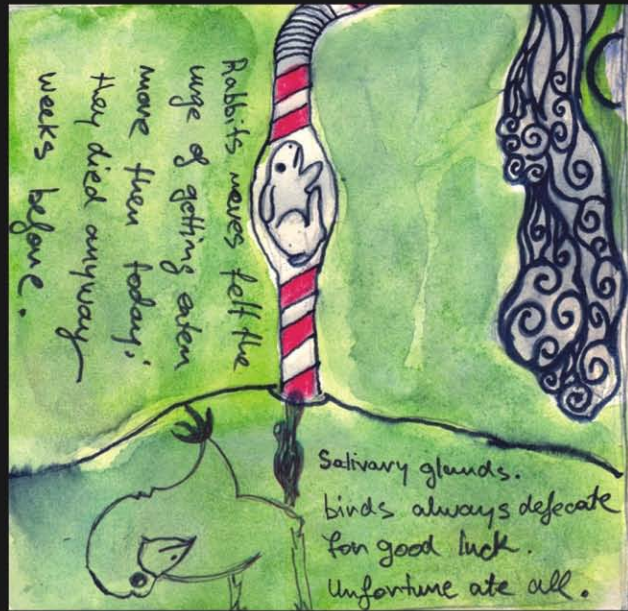 Rabbits neves felt the
urge of getting eaten
more then today;
they died anyway
weeks before.
Salivary glands.
birds always defecate
for good luck.
Unfortune ate all.